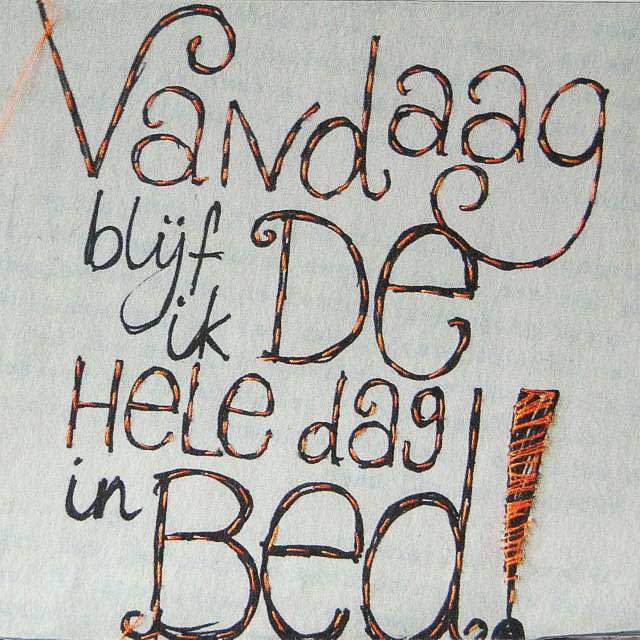 Vandaag
blijf ik DE
HELE dag
in Bed!